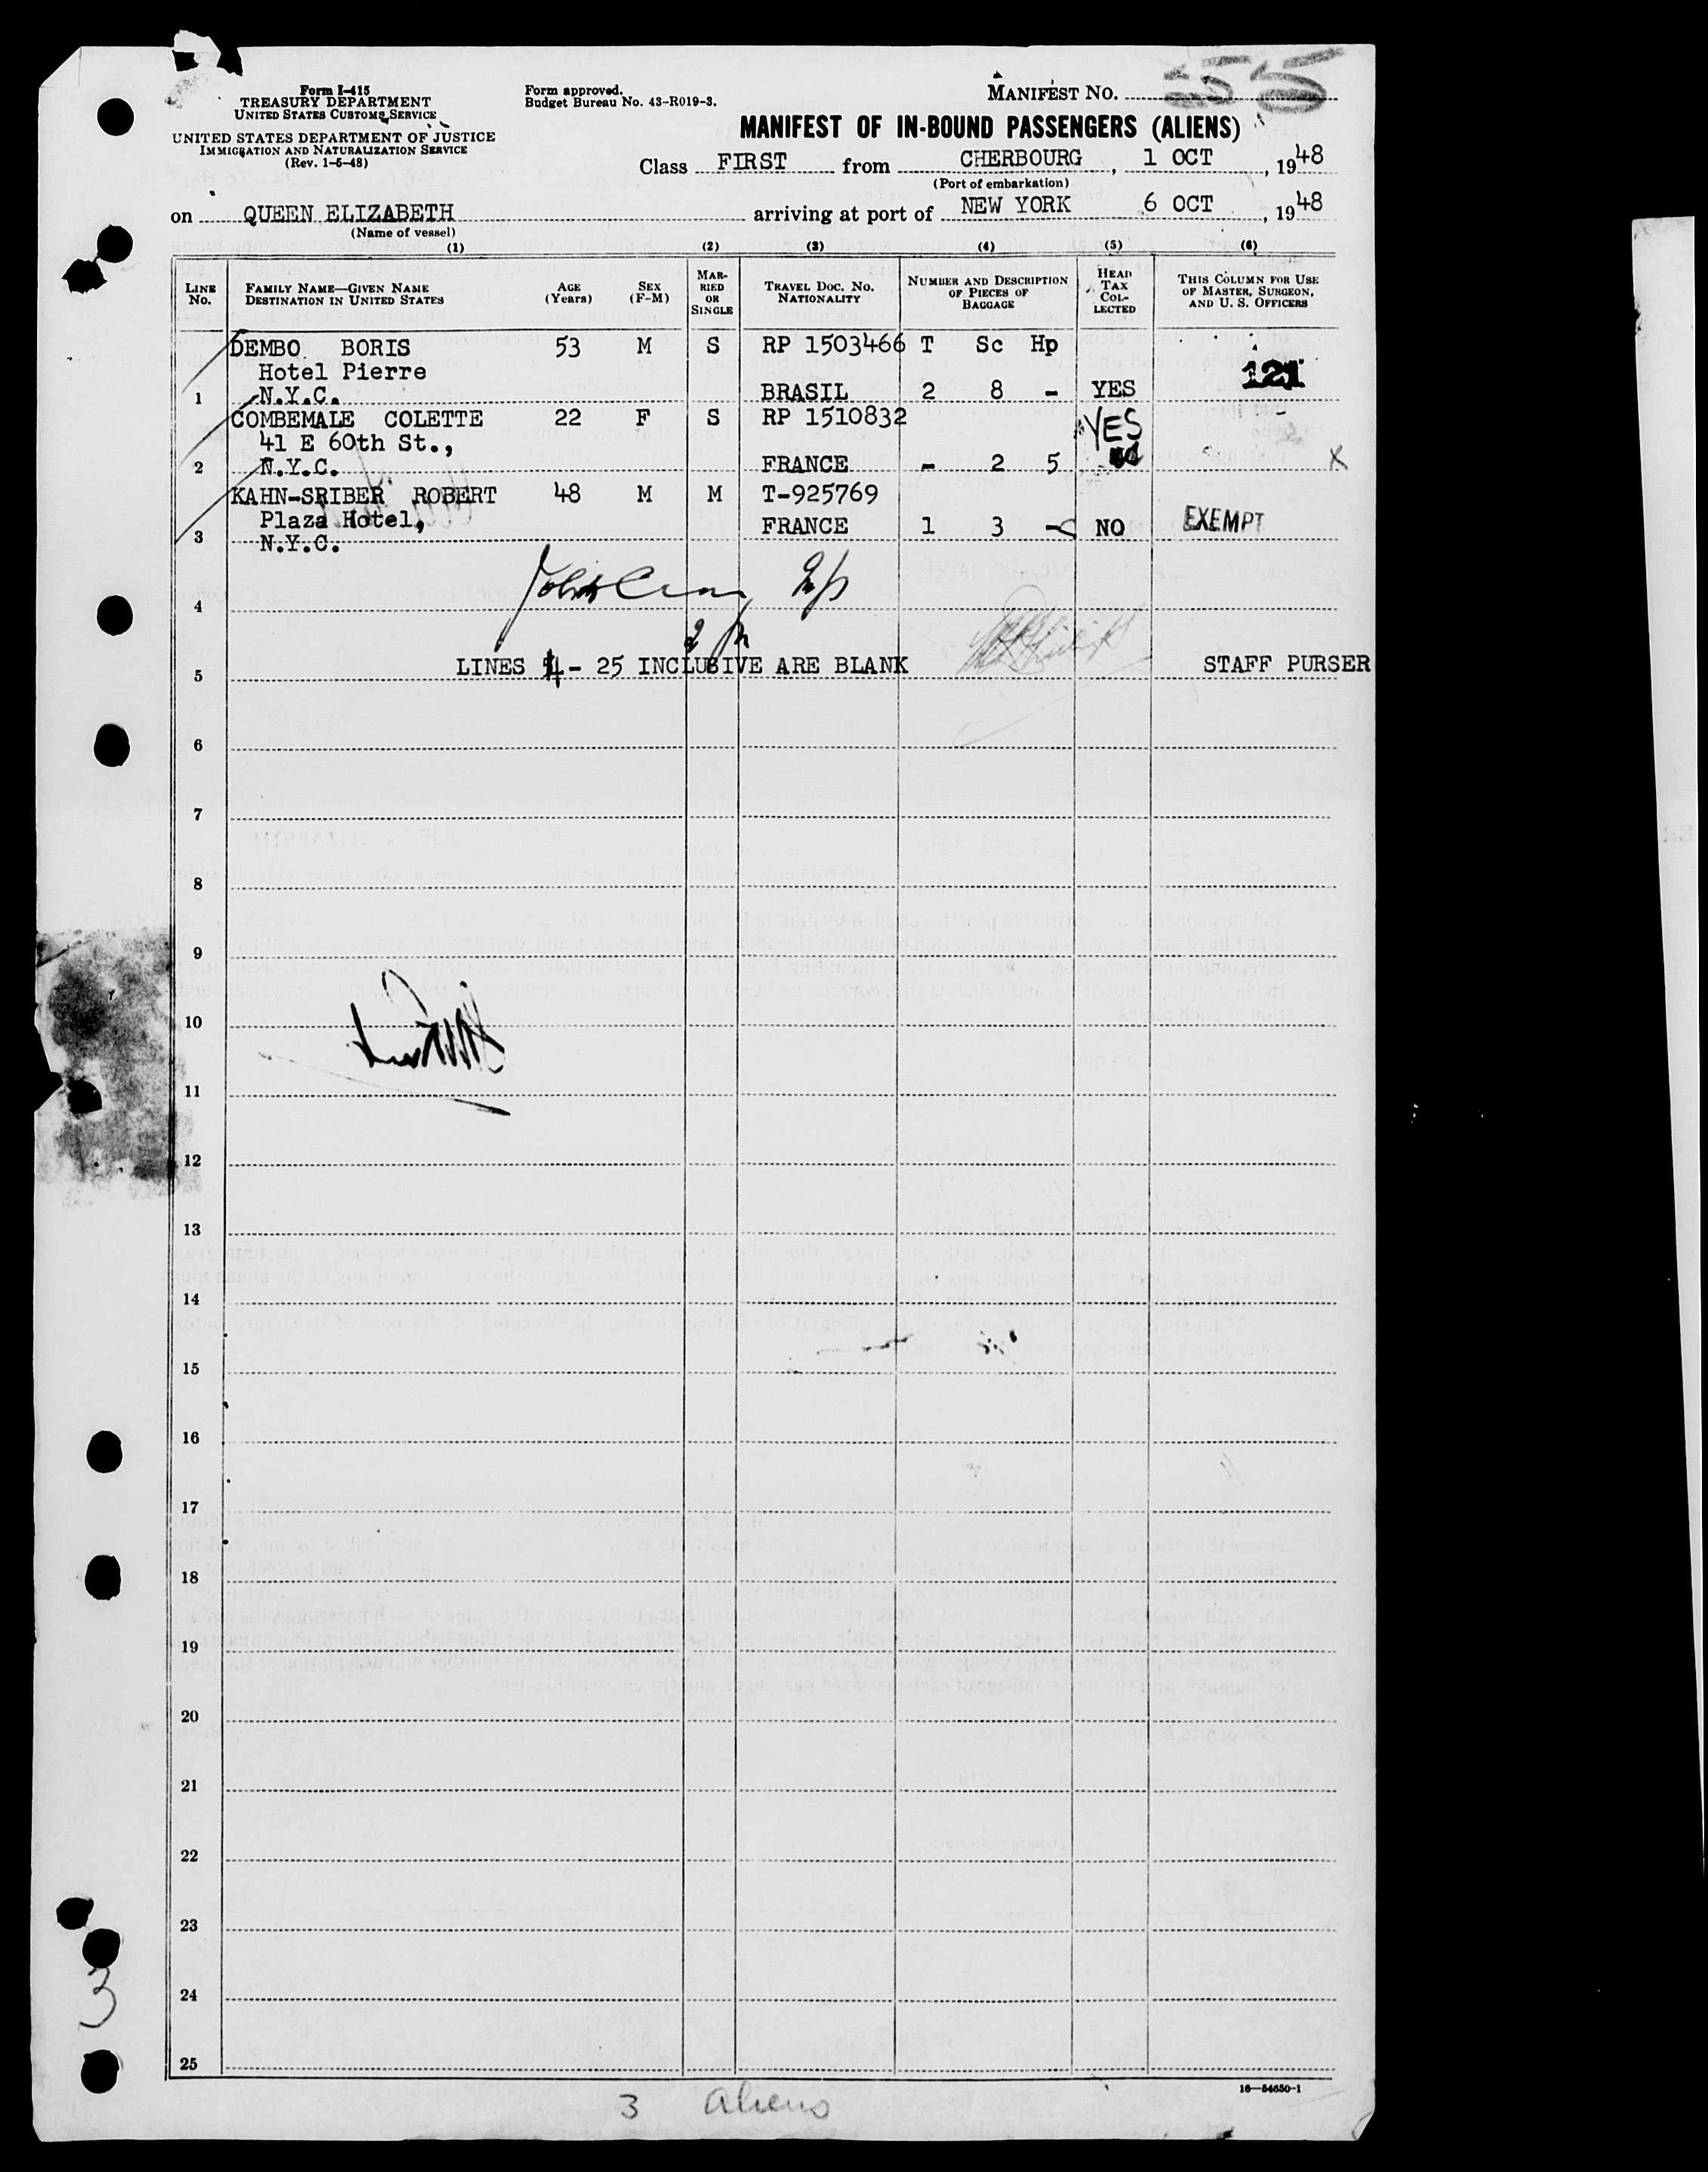 Form I-415
TREASURY DEPARTMENT
UNITED STATES CUSTOMS SERVICE
UNITED STATES DEPARTMENT OF JUSTICE
IMMIGRATION AND NATURALIZATION SERVICE
(Rev. 1-5-48)
Form approved.
Budget Bureau No. 43-R019-3.
MANIFEST NO.
MANIFEST OF IN-BOUND PASSENGERS (ALIENS)
Class FIRST from CHERBOURG, 1 OCT, 1948
(Port of embarkation)
on QUEEN ELIZABETH arriving at port of NEW YORK 6 OCT, 1948
(Name of vessel)
(1) (2) (3) (4) (5) (6)
LINE No. FAMILY NAME—GIVEN NAME DESTINATION IN UNITED STATES AGE (Years) SEX (F-M) MARRIED OR SINGLE TRAVEL DOC. NO. NATIONALITY NUMBER AND DESCRIPTION OF PIECES OF BAGGAGE HEAD TAX COLLECTED THIS COLUMN FOR USE OF MASTER, SURGEON, AND U. S. OFFICERS
DEMBO BORIS 53 M S RP 1503466 T Sc Hp
Hotel Pierre 121
1 N.Y.C. BRASIL 2 8 - YES
COMBEMALE COLETTE 22 F S RP 1510832 YES
41 E 60th St.,
2 N.Y.C. FRANCE - 2 5 X
KAHN-SRIBER ROBERT 48 M M T-925769
Plaza Hotel, FRANCE 1 3 - NO EXEMPT
3 N.Y.C.
4
LINES 4 - 25 INCLUSIVE ARE BLANK STAFF PURSER
5
6
7
8
9
10
11
12
13
14
15
16
17
18
19
20
21
22
23
24
25
3
16—54650-1
3 aliens